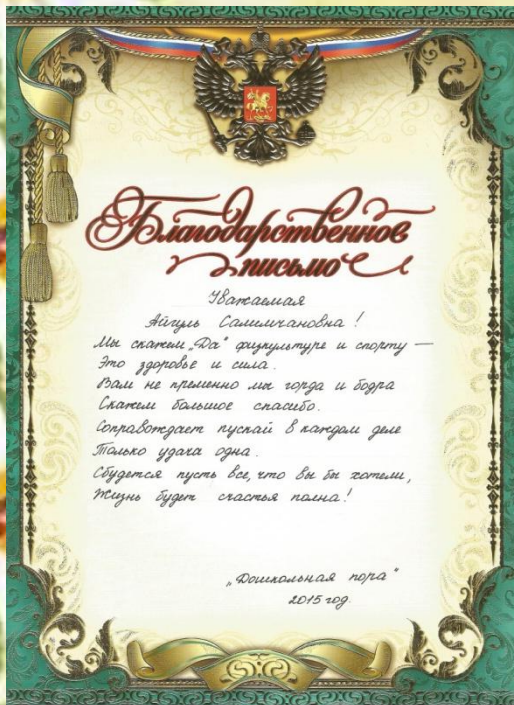 Благодарственное
письмо
Уважаемая
Айгуль Салимчановна!
Мы скажем „Да" физкультуре и спорту —
Это здоровье и сила.
Вам не пременно мы горда и бодра
Скажем большое спасибо.
Сопровождает пускай в каждом деле
Только удача одна.
Сбудется пусть все, что вы бы хотели,
Жизнь будет счастья полна!
„Дошкольная пора"
2015 год.